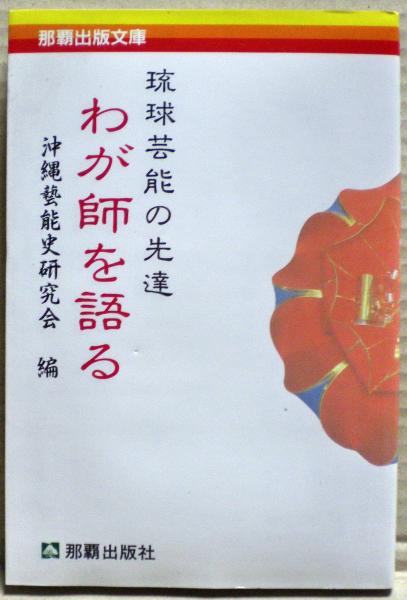 那覇出版文庫
琉球芸能の先達
わが師を語る
沖縄藝能史研究会 編
那覇出版社